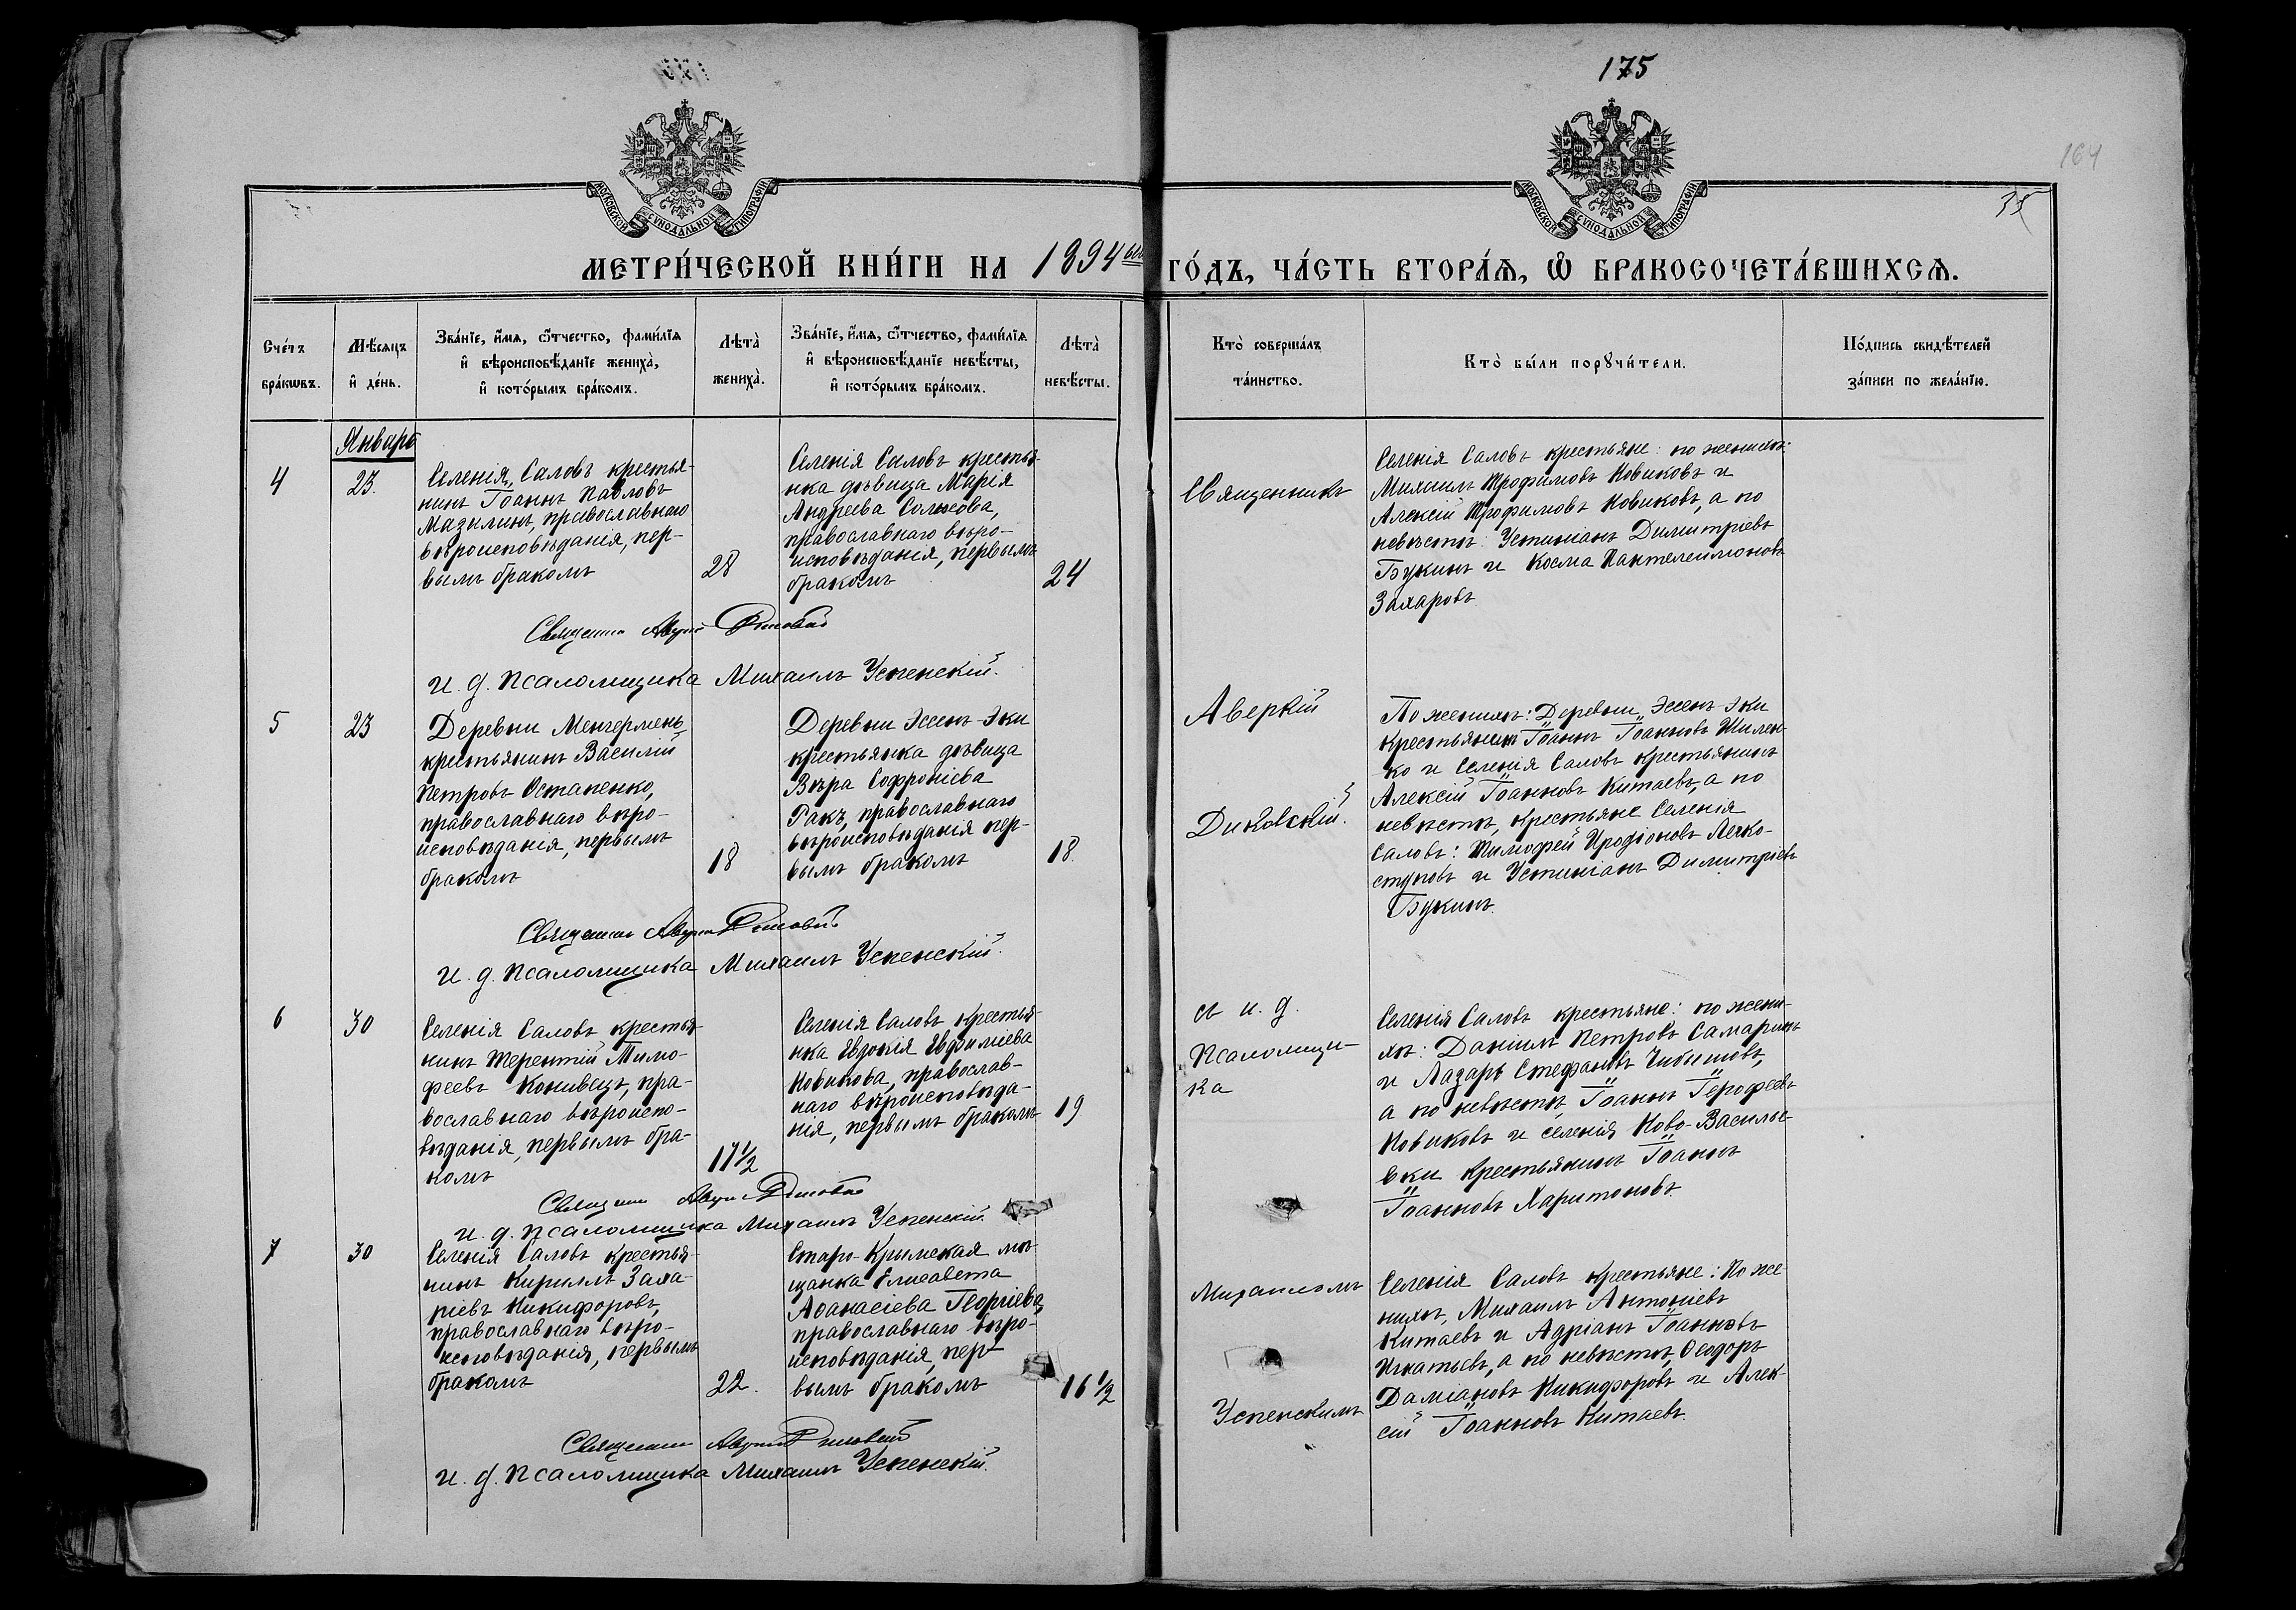 175
164
МОСКОВСКОЙ СѴНОДАЛЬНОЙ ТИПОГРАФІИ
МОСКОВСКОЙ СѴНОДАЛЬНОЙ ТИПОГРАФІИ
МЕТРИ́ЧЕСКОЙ КНИ́ГИ НА 1894 ГО́ДЪ, ЧА́СТЬ ВТОРА́Ѧ, Ѽ БРАКОСОЧЕТА́ВШИХСѦ.
Сче́тъ
бра́кѡвъ.
Мѣ́сяцъ
и҆ де́нь.
Зва́нїе, и҆́мѧ, ѻ҆́тчество, фами́лїѧ
и҆ вѣроисповѣ́данїе жениха̀,
и҆ кото́рымъ бра́комъ.
Лѣта̀
жениха̀.
Зва́нїе, и҆́мѧ, ѻ҆́тчество, фами́лїѧ
и҆ вѣроисповѣ́данїе невѣ́сты,
и҆ кото́рымъ бра́комъ.
Лѣта̀
невѣ́сты.
Кто̀ соверша́лъ
та́инство.
Кто̀ бы́ли порꙋчи́тели.
По́дпись свидѣ́телей
за́писи по жела́нїю.
Январь
4
23.
Селенія Саловъ крестья-
нинъ Іоаннъ Павловъ
Мазилинъ, православнаго
вѣроисповѣданія, пер-
вымъ бракомъ
28
Селенія Саловъ крестья-
нка дѣвица Марія
Андреева
православнаго вѣро-
исповѣданія, первымъ
бракомъ
24
Священникъ
Селенія Саловъ крестьяне: по женихѣ:
Михаилъ Трофимовъ Новиковъ и
Алексій Трофимовъ Новиковъ, а по
невѣстѣ: Устиніанъ Димитріевъ
Букинъ и Косма Пантелеймоновъ
Захаровъ
И. д. псаломщика Михаилъ Успенскій.
5
23
Деревни Менгермень
крестьянинъ Василій
Петровъ Остапенко,
православнаго вѣро-
исповѣданія, первымъ
бракомъ
18
Деревни Эссенъ-Эки
крестьянка дѣвица
Вѣра Софроніева
Ракъ, православнаго
вѣроисповѣданія пер-
вымъ бракомъ
18.
Аверкій
Диковскій.
По женихѣ: Деревни Эсенъ-Эки
крестьянинъ Іоаннъ Іоанновъ Шилен-
ко и Селенія Саловъ крестьянинъ
Алексій Іоанновъ Китаевъ, а по
невѣстѣ, крестьяне Селенія
Саловъ: Тимофей Иродіоновъ Легко-
ступовъ и Устиніанъ Димитріевъ
Букинъ.
И. д. псаломщика Михаилъ Успенскій.
6
30
Селенія Саловъ крестья-
нинъ Терентій Тимо-
феевъ Конивецъ, пра-
вославнаго вѣроиспо-
вѣданія, первымъ бра-
комъ
17 1/2
Селенія Саловъ крестья-
нка Евдокія Евфиміева
Новикова, православ-
наго вѣроисповѣда-
нія, первымъ бракомъ
19
съ и. д.
псаломщи-
ка
Селенія Саловъ крестьяне: по жени-
хѣ: Даніилъ Петровъ Самаринъ
и Лазарь Стефановъ Чибышовъ,
а по невѣстѣ, Іоаннъ Герофеевъ
Новиковъ и селенія Ново-Василье-
вки крестьянинъ Іоаннъ
Іоанновъ Харитоновъ.
И. д. псаломщика Михаилъ Успенскій.
7
30
Селенія Саловъ крестья-
нинъ Кириллъ Заха-
ріевъ Никифоровъ,
православнаго вѣро-
исповѣданія, первымъ
бракомъ
22.
Старо-Крымская мѣ-
щанка Елисавета
Аѳанасіева Георгіева,
православнаго вѣро-
исповѣданія, пер-
вымъ бракомъ
16 1/2
Михаиломъ
Успенскимъ
Селенія Саловъ крестьяне: По же-
нихѣ, Михаилъ Антоніевъ
Китаевъ и Адріанъ Іоанновъ
Игнатьевъ, а по невѣстѣ, Ѳеодоръ
Даміановъ Никифоровъ и Алек-
сій Іоанновъ Китаевъ.
И. д. псаломщика Михаилъ Успенскій.